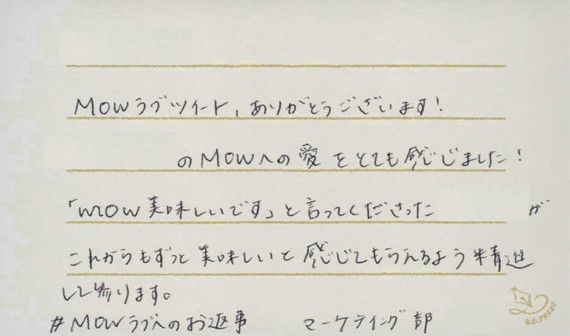 MOWラブツイート、ありがとうございます!
のMOWへの愛をとても感じました!
「MOW美味しいです」と言ってくださった が
これからもずっと美味しいと感じてもらえるよう精進
して参ります。
#MOWラブへのお返事 マーケティング部